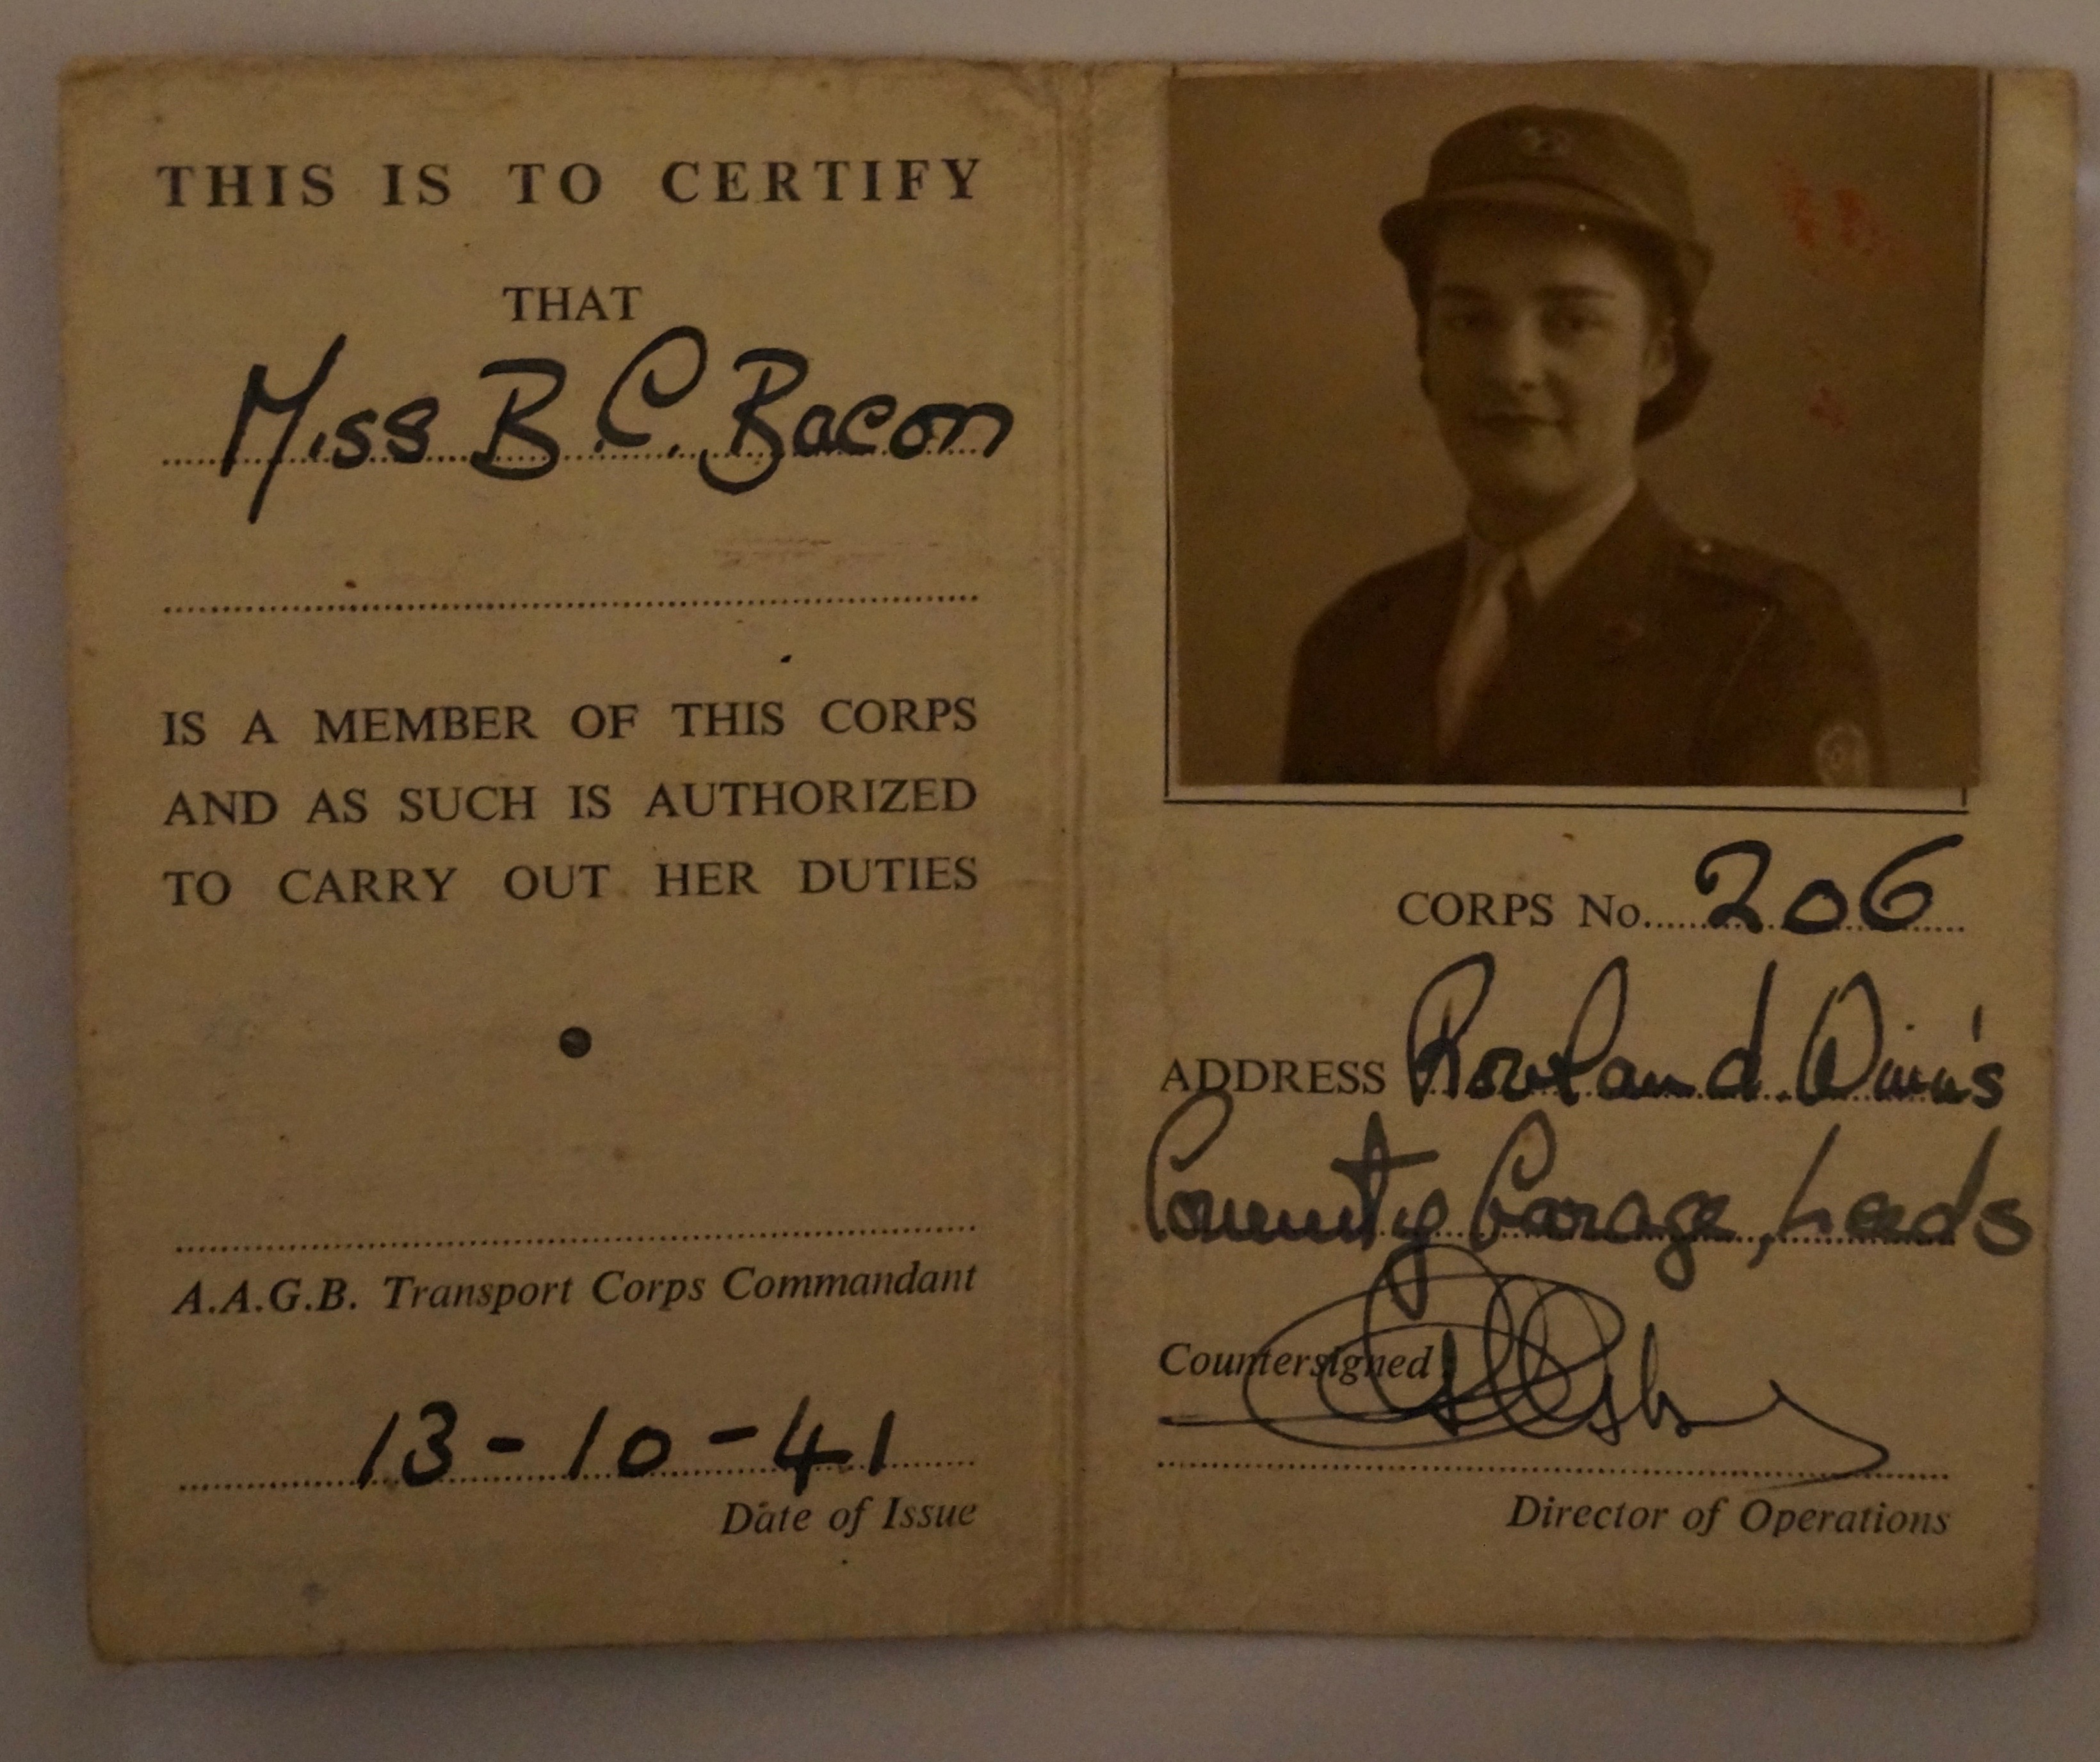 THIS IS TO CERTIFY
THAT
Miss B.C. Bacon
IS A MEMBER OF THIS CORPS
AND AS SUCH IS AUTHORIZED
TO CARRY OUT HER DUTIES
A.A.G.B. Transport Corps Commandant
13-10-41
Date of Issue
CORPS No. 206
ADDRESS Rowland Winn's
County Garage, Leeds
Countersigned
Director of Operations